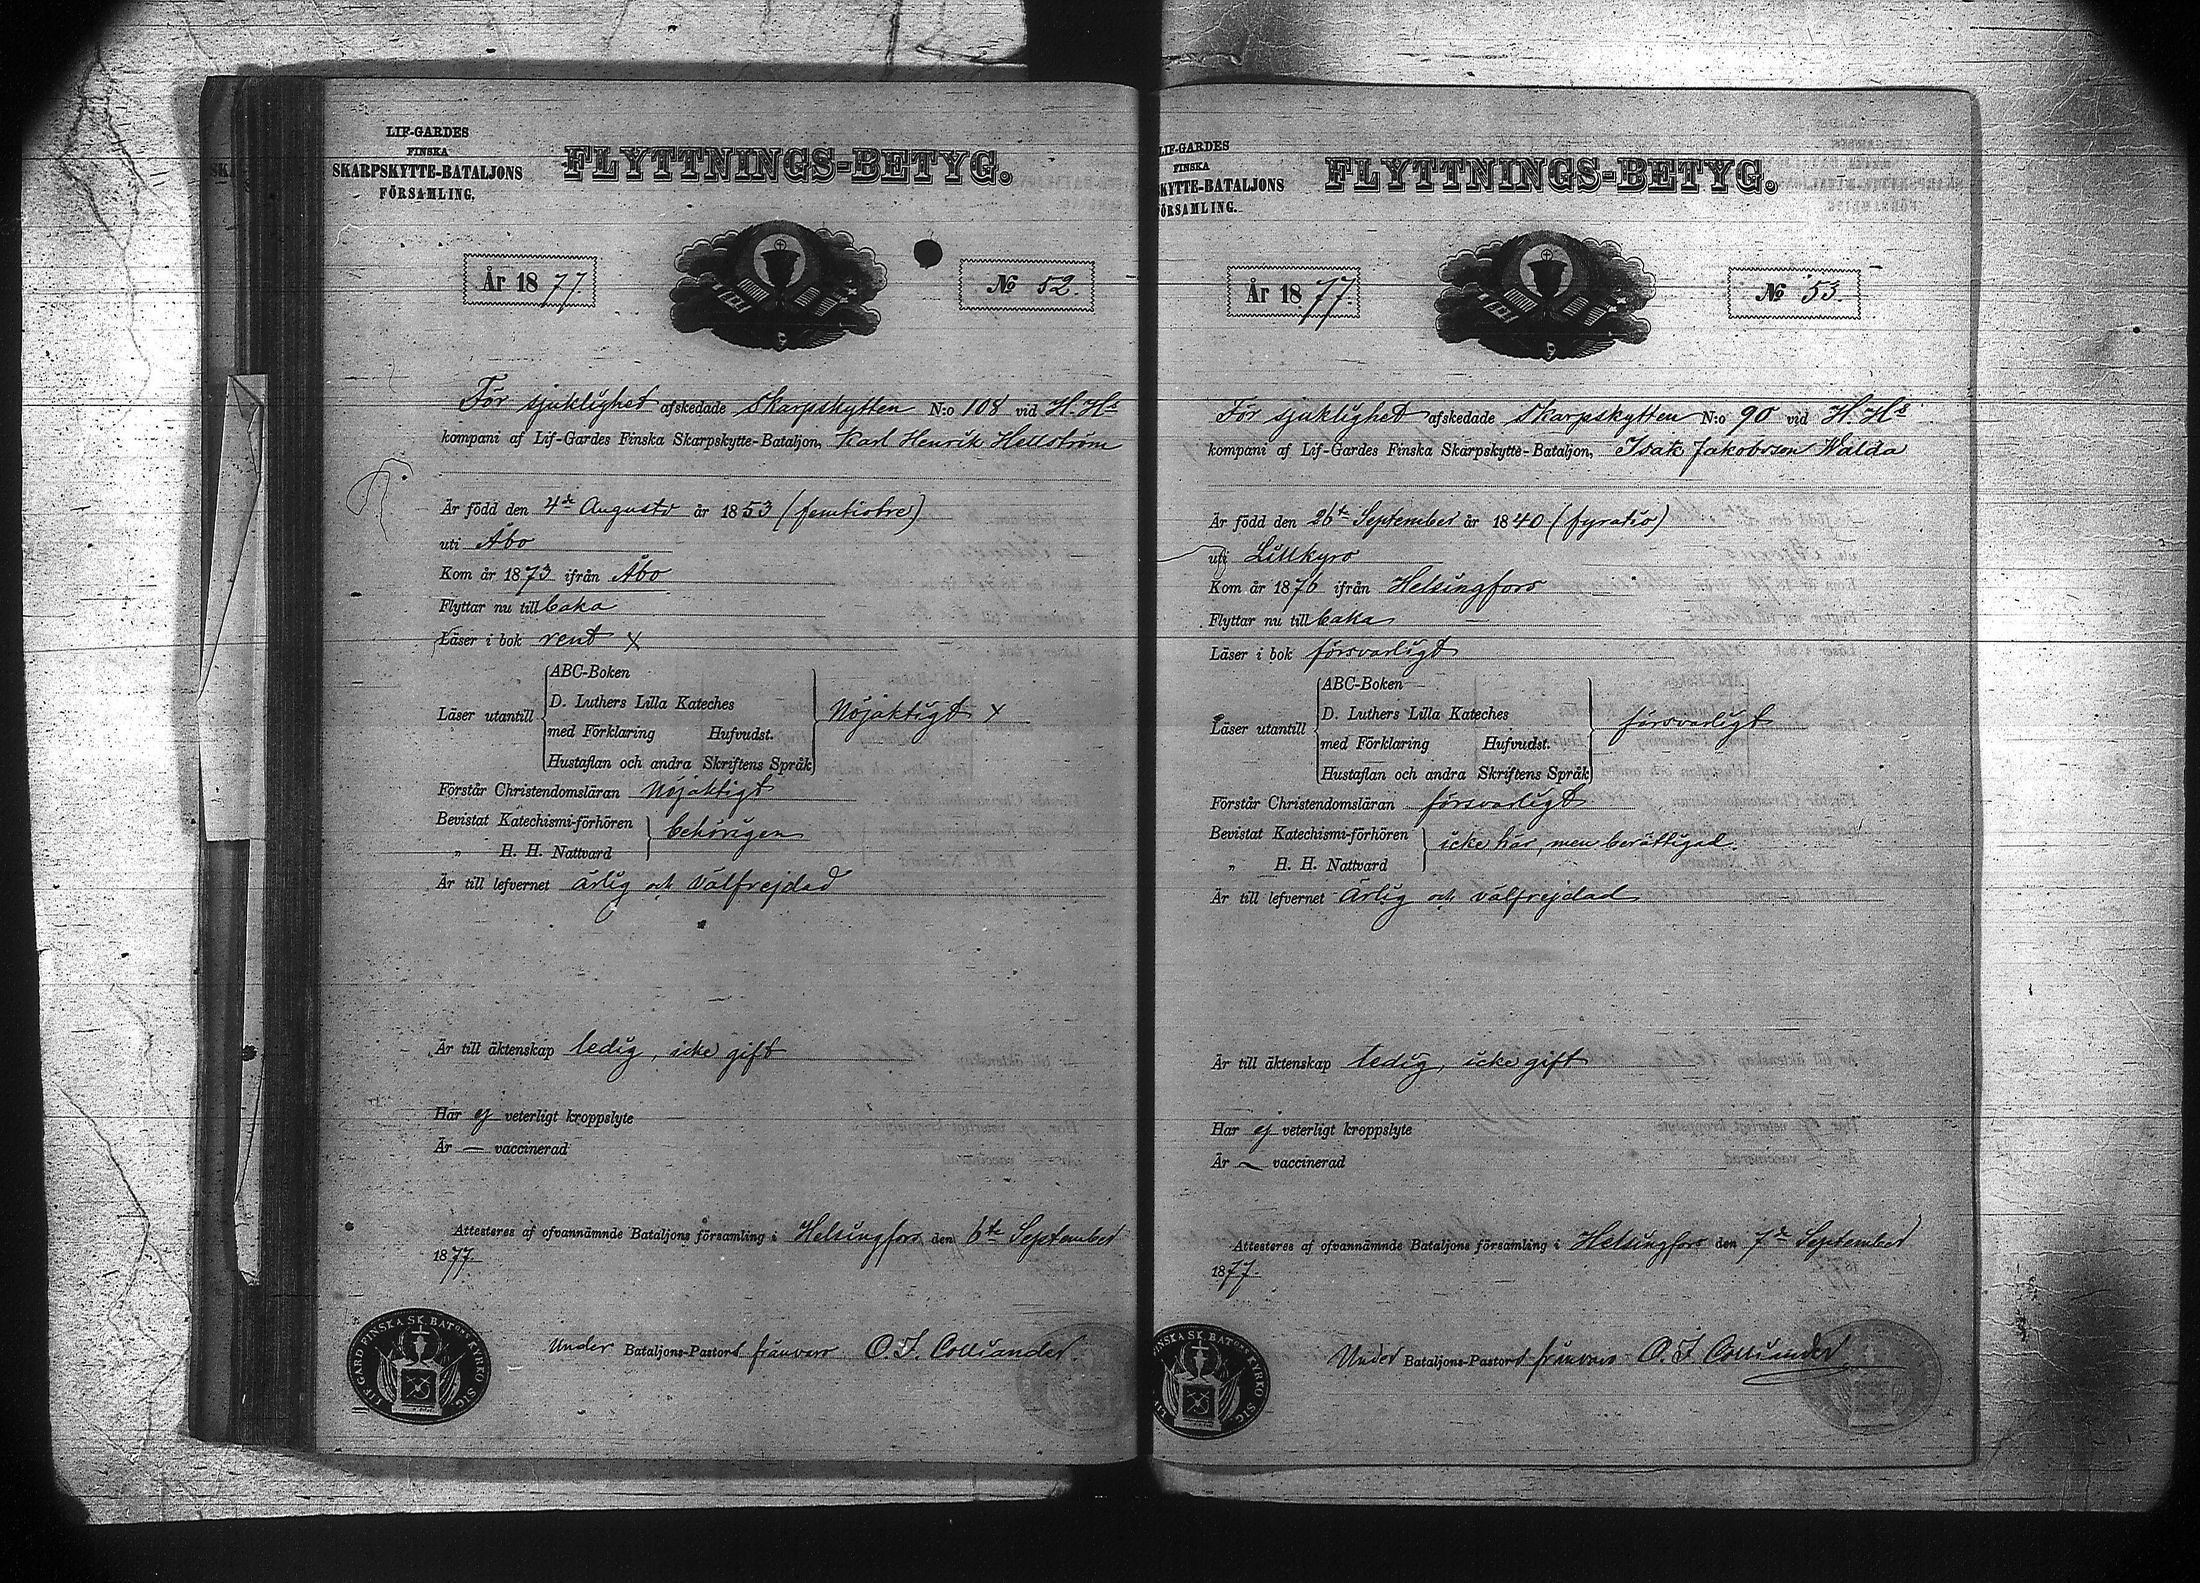 LIF-GARDES
FINSKA
SKARPSKYTTE-BATALJONS
FÖRSAMLING.
FLYTTNINGS-BETYG.
År 1877.
No 52.
För sjuklighet afskedade Skarpskytten N:o 108 vid H. H.s
kompani af Lif-Gardes Finska Skarpskytte-Bataljon, Karl Henrik Hellström
Är född den 4de Augusti år 1853 (femtiotre)
uti Åbo
Kom år 1873 ifrån Åbo
Flyttar nu tillbaka
Läser i bok rent x
ABC-Boken
D. Luthers Lilla Kateches
Läser utantill Nöjaktigt x
med Förklaring Hufvudst.
Hustaflan och andra Skriftens Språk
Förstår Christendomsläran Nöjaktigt
Bevistat Katechismi-förhören behörigen
„ H. H. Nattvard
Är till lefvernet ärlig och välfrejdad
Är till äktenskap ledig, icke gift
Har ej veterligt kroppslyte
Är — vaccinerad
Attesteras af ofvannämnde Bataljons församling i Helsingfors den 6te September
1877.
Under Bataljons-Pastors frånvaro O. I. Colliander.
LIF GARD FINSKA SK. BATONS KYRKO SIG.
LIF-GARDES
FINSKA
KYTTE-BATALJONS
ÖRSAMLING.
FLYTTNINGS-BETYG.
År 1877.
No 53.
För sjuklighet afskedade Skarpskytten N:o 90 vid H. H.s
kompani af Lif-Gardes Finska Skarpskytte-Bataljon, Isak Jakobsson Walda
Är född den 26te September år 1840 (fyratio)
uti Lillkyro
Kom år 1876 ifrån Helsingfors
Flyttar nu tillbaka
Läser i bok försvarligt
ABC-Boken
D. Luthers Lilla Kateches
Läser utantill försvarligt
med Förklaring Hufvudst.
Hustaflan och andra Skriftens Språk
Förstår Christendomsläran försvarligt
Bevistat Katechismi-förhören icke här, men berättigad.
„ H. H. Nattvard
Är till lefvernet ärlig och välfrejdad
Är till äktenskap ledig, icke gift
Har ej veterligt kroppslyte
Är — vaccinerad
Attesteras af ofvannämnde Bataljons församling i Helsingfors den 7de September
1877.
Under Bataljons-Pastors frånvaro O. I. Colliander
FINSKA SK. BATONS KYRKO SIG.